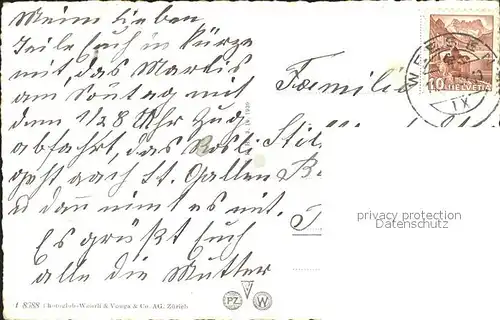 Meine Lieben
Teile Euch in Kürze
mit, das Marlis
am Sontag mit
dem 1/28 Uhr Zug
abfahrt, das Rösli
geht nach St. Gallen
u dan nimt es mit.
Es grüßt Euch
alle die Mutter
Familie
WEESEN
IX
10 HELVETIA
privacy protection
Datenschutz
A 8288 Photoglob-Wehrli & Vouga & Co. AG. Zürich
PZ W